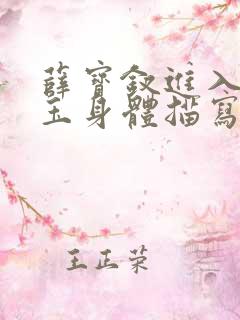 薛寶釵進入
玉身體描寫
王正荣